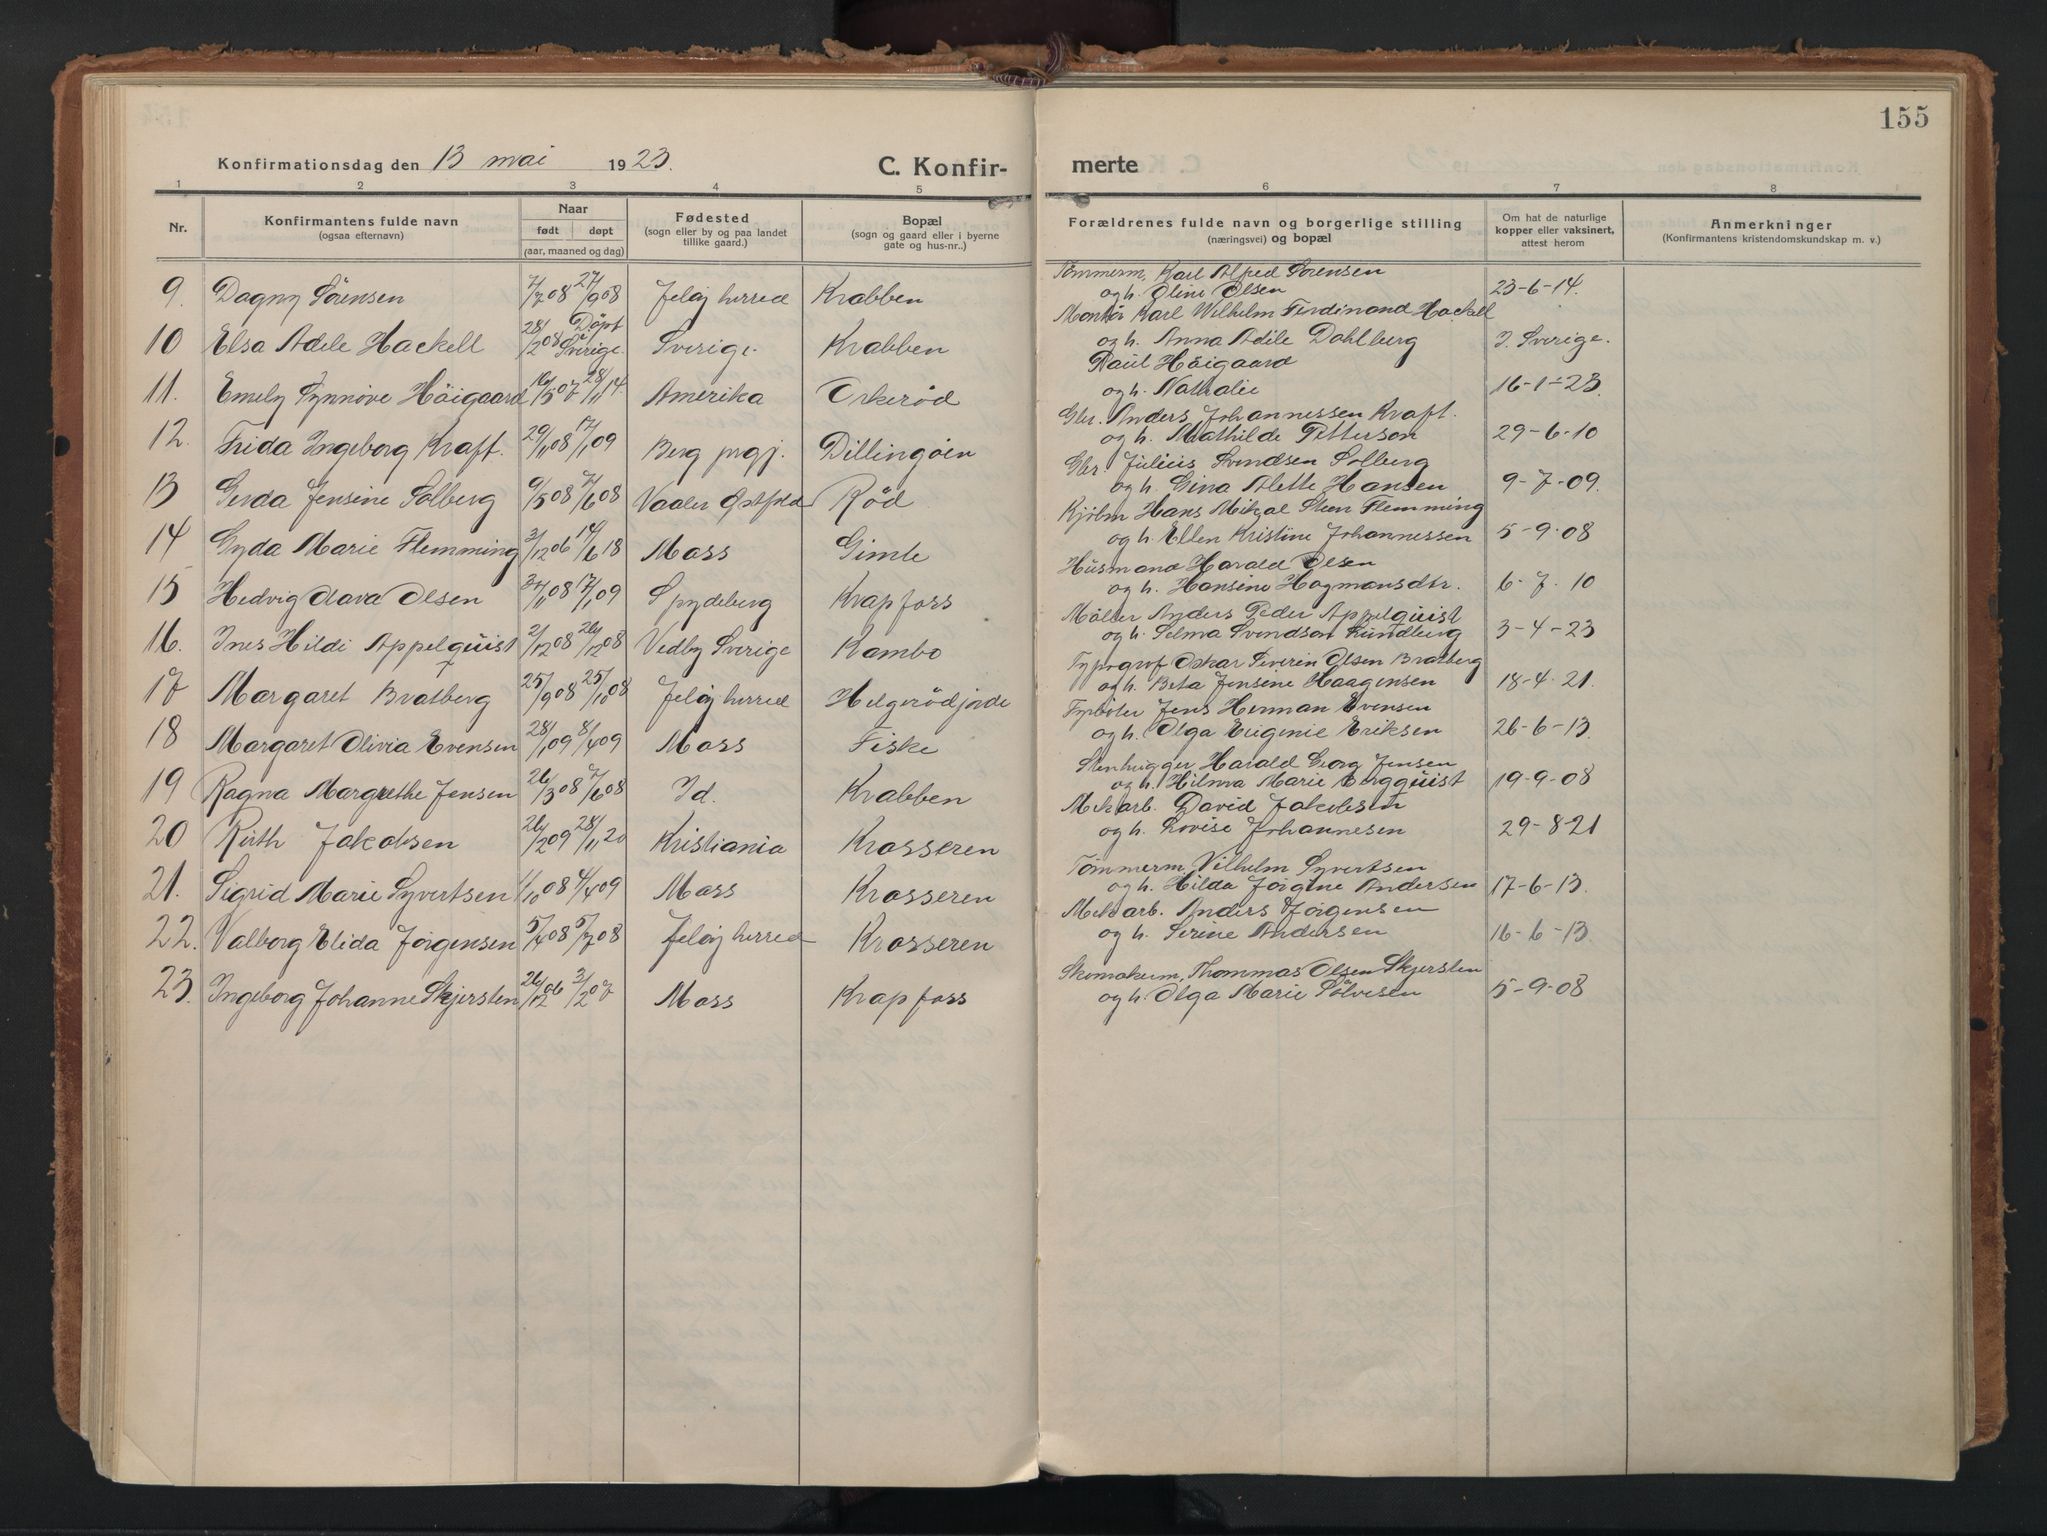 155
Konfirmationsdag den 13 mai 1923. C. Konfir- merte
1 2 3 4 5 6 7 8
Nr. Konfirmantens fulde navn (ogsaa efternavn) Naar født døpt (aar, maaned og dag) Fødested (sogn eller by og paa landet tillike gaard.) Bopæl (sogn og gaard eller i byerne gate og hus-nr..) Forældrenes fulde navn og borgerlige stilling (næringsvei) og bopæl Om hat de naturlige kopper eller vaksinert, attest herom Anmerkninger (Konfirmantens kristendomskundskap m. v.)
9. Dagny Sørensen 7/7 08 27/9 08 Jeløy herred Krabben Tømmerm. Karl Alfred Sørensen
og h. Oline Olsen 23-6-14.
10 Elsa Adele Hackell 28/2 08 Døpt i Sverige. Sverige. Krabben Montør Karl Wilhelm Ferdinand Hackell
og h. Anna Adile Dahlberg I. Sverige.
11. Emely Synnøve Höigaard 16/5 07 28/11 14. Amerika Orkerød Paul Höigaard
og h. Nathalie 16-1-23.
12. Frida Ingeborg Kraft. 29/11 08 17/1 09 Berg prgj. Dillingøen Gbr. Anders Johannessen Kraft.
og h. Mathilde Petterson 29-6-10
13 Gerda Jensine Solberg 9/5 08 7/6 08 Vaaler Østfold Rød Gbr Julius Svendsen Solberg
og h. Gina Alette Hansen 9-7-09.
14 Gyda Marie Flemming 3/12 06 14/6 18 Moss Gimle Kjølm Hans Mikal Steen Flemming
og h. Ellen Kristine Johannessen 5-9-08
15 Hedvig Olava Olsen 08 17/1 09 Spydeberg Krapfoss Husmand Harald Olsen
og h. Hansine Hagmansdtr. 6-7-10
16. Ines Hildi Appelquist 2/12 08 26/12 08 Vedby Sverige Kambo Møller Anders Peder Appelquist
og h. Selma Svendson Lundberg 3-4-23
17 Margaret Bratberg 25/9 08 25/10 08 Jeløy herred Helgerødjorde Typograf Oskar Severin Olsen Bratberg
og h. Beta Jensine Haagensen 18-4-21.
18 Margaret Olivia Evensen 28/1 09 8/4 09 Moss Fiske Fyrbøter Jens Herman Evensen
og h. Olga Eugenie Eriksen 26-6-13.
19 Ragna Margrethe Jensen 26/3 08 7/6 08 Id. Krabben Stenhugger Harald Georg Jensen
og h. Hilma Marie Bergquist 19-9-08
20 Ruth Jakobsen 26/2 09 28/11 20 Kristiania Krosseren Mek arb. David Jakobsen
og h. Lovise Johannesen 29-8-21
21. Sigrid Marie Syvertsen 1/10 08 4/4 09 Moss Krosseren Tømmerm. Vilhelm Syvertsen
og h. Hilda Jørgine Andersen 17-6-13.
22. Valborg Elida Jørgensen 5/4 08 5/7 08 Jeløy herred Krosseren Mek arb. Anders Jørgensen
og h. Serine Andersen 16-6-13
23. Ingeborg Johanne Skjersten 26/12 06 3/2 07 Moss Krapfoss Skomakerm. Thommas Olsen Skjersten
og h. Olga Marie Sølvesen 5-9-08